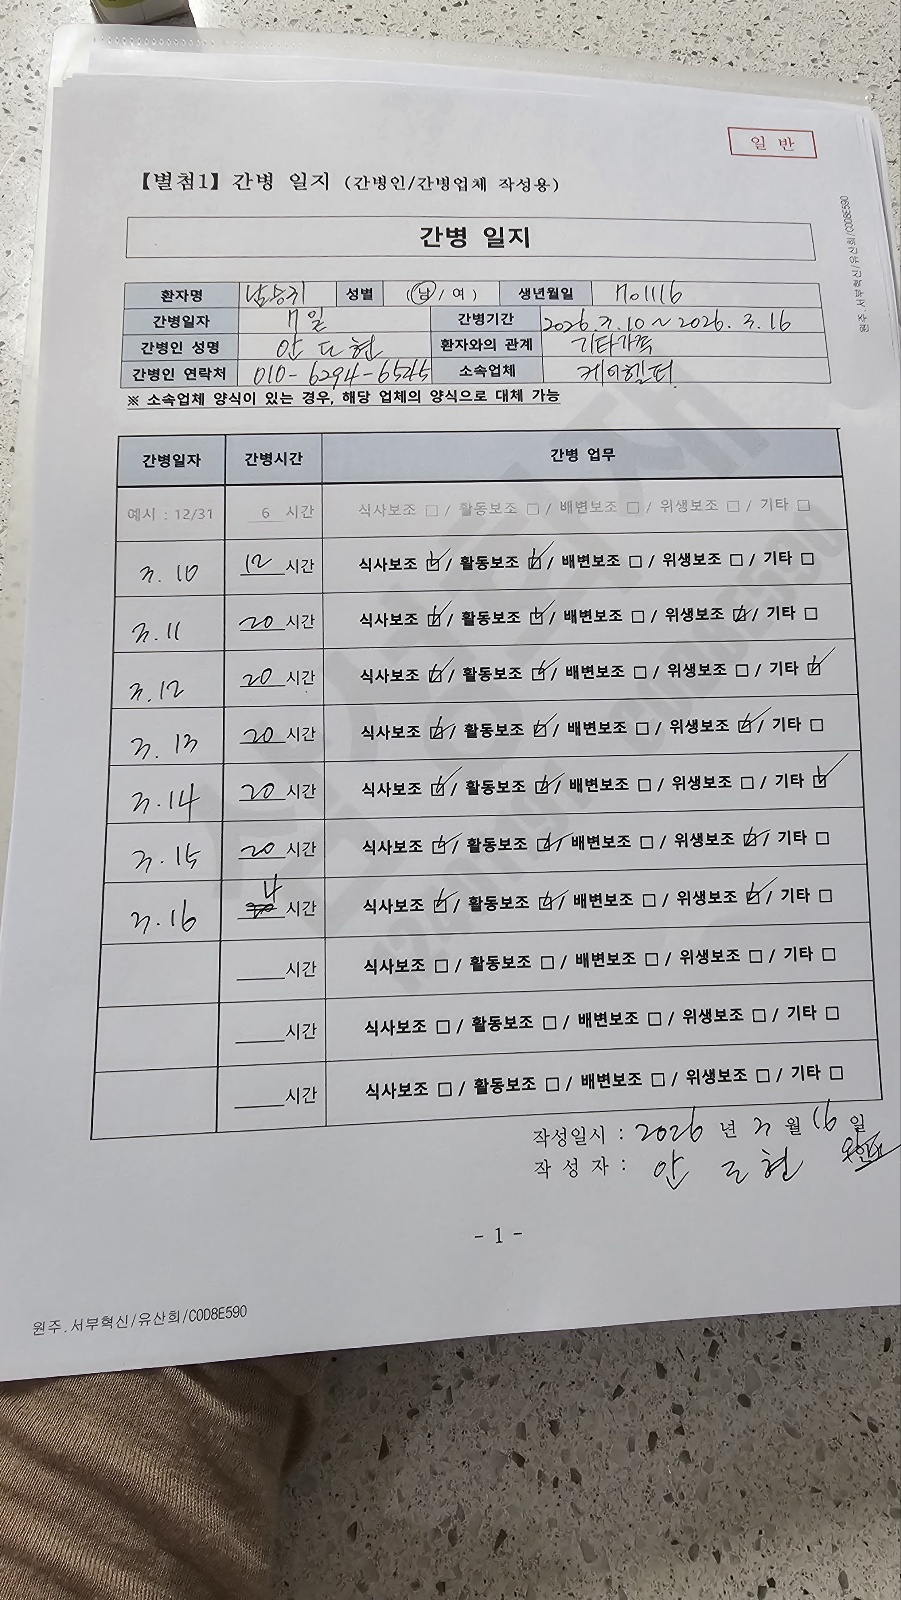 일 반
【별첨1】 간병 일지 (간병인/간병업체 작성용)
원주.서부혁신/유산회/C0D8E590
간병 일지
환자명 남승키 성별 (남 / 여) 생년월일 701116
간병일자 7일 간병기간 2026.3.10 ~ 2026.3.16
간병인 성명 안도현 환자와의 관계 기타가족
간병인 연락처 010-6294-6545 소속업체 케이헬퍼
※ 소속업체 양식이 있는 경우, 해당 업체의 양식으로 대체 가능
간병일자 간병시간 간병 업무
예시 : 12/31 6 시간 식사보조 □ / 활동보조 □ / 배변보조 □ / 위생보조 □ / 기타 □
3.10 12 시간 식사보조 ☑ / 활동보조 ☑ / 배변보조 □ / 위생보조 □ / 기타 □
3.11 20 시간 식사보조 ☑ / 활동보조 ☑ / 배변보조 □ / 위생보조 ☑ / 기타 □
3.12 20 시간 식사보조 ☑ / 활동보조 ☑ / 배변보조 □ / 위생보조 □ / 기타 ☑
3.13 20 시간 식사보조 ☑ / 활동보조 ☑ / 배변보조 □ / 위생보조 ☑ / 기타 □
3.14 20 시간 식사보조 ☑ / 활동보조 ☑ / 배변보조 □ / 위생보조 □ / 기타 ☑
3.15 20 시간 식사보조 ☑ / 활동보조 ☑ / 배변보조 □ / 위생보조 ☑ / 기타 □
3.16 시간 식사보조 ☑ / 활동보조 ☑ / 배변보조 □ / 위생보조 ☑ / 기타 □
시간 식사보조 □ / 활동보조 □ / 배변보조 □ / 위생보조 □ / 기타 □
시간 식사보조 □ / 활동보조 □ / 배변보조 □ / 위생보조 □ / 기타 □
시간 식사보조 □ / 활동보조 □ / 배변보조 □ / 위생보조 □ / 기타 □
작성일시 : 2026 년 3 월 16 일
작 성 자 : 안 도 현
- 1 -
원주.서부혁신/유산회/C0D8E590